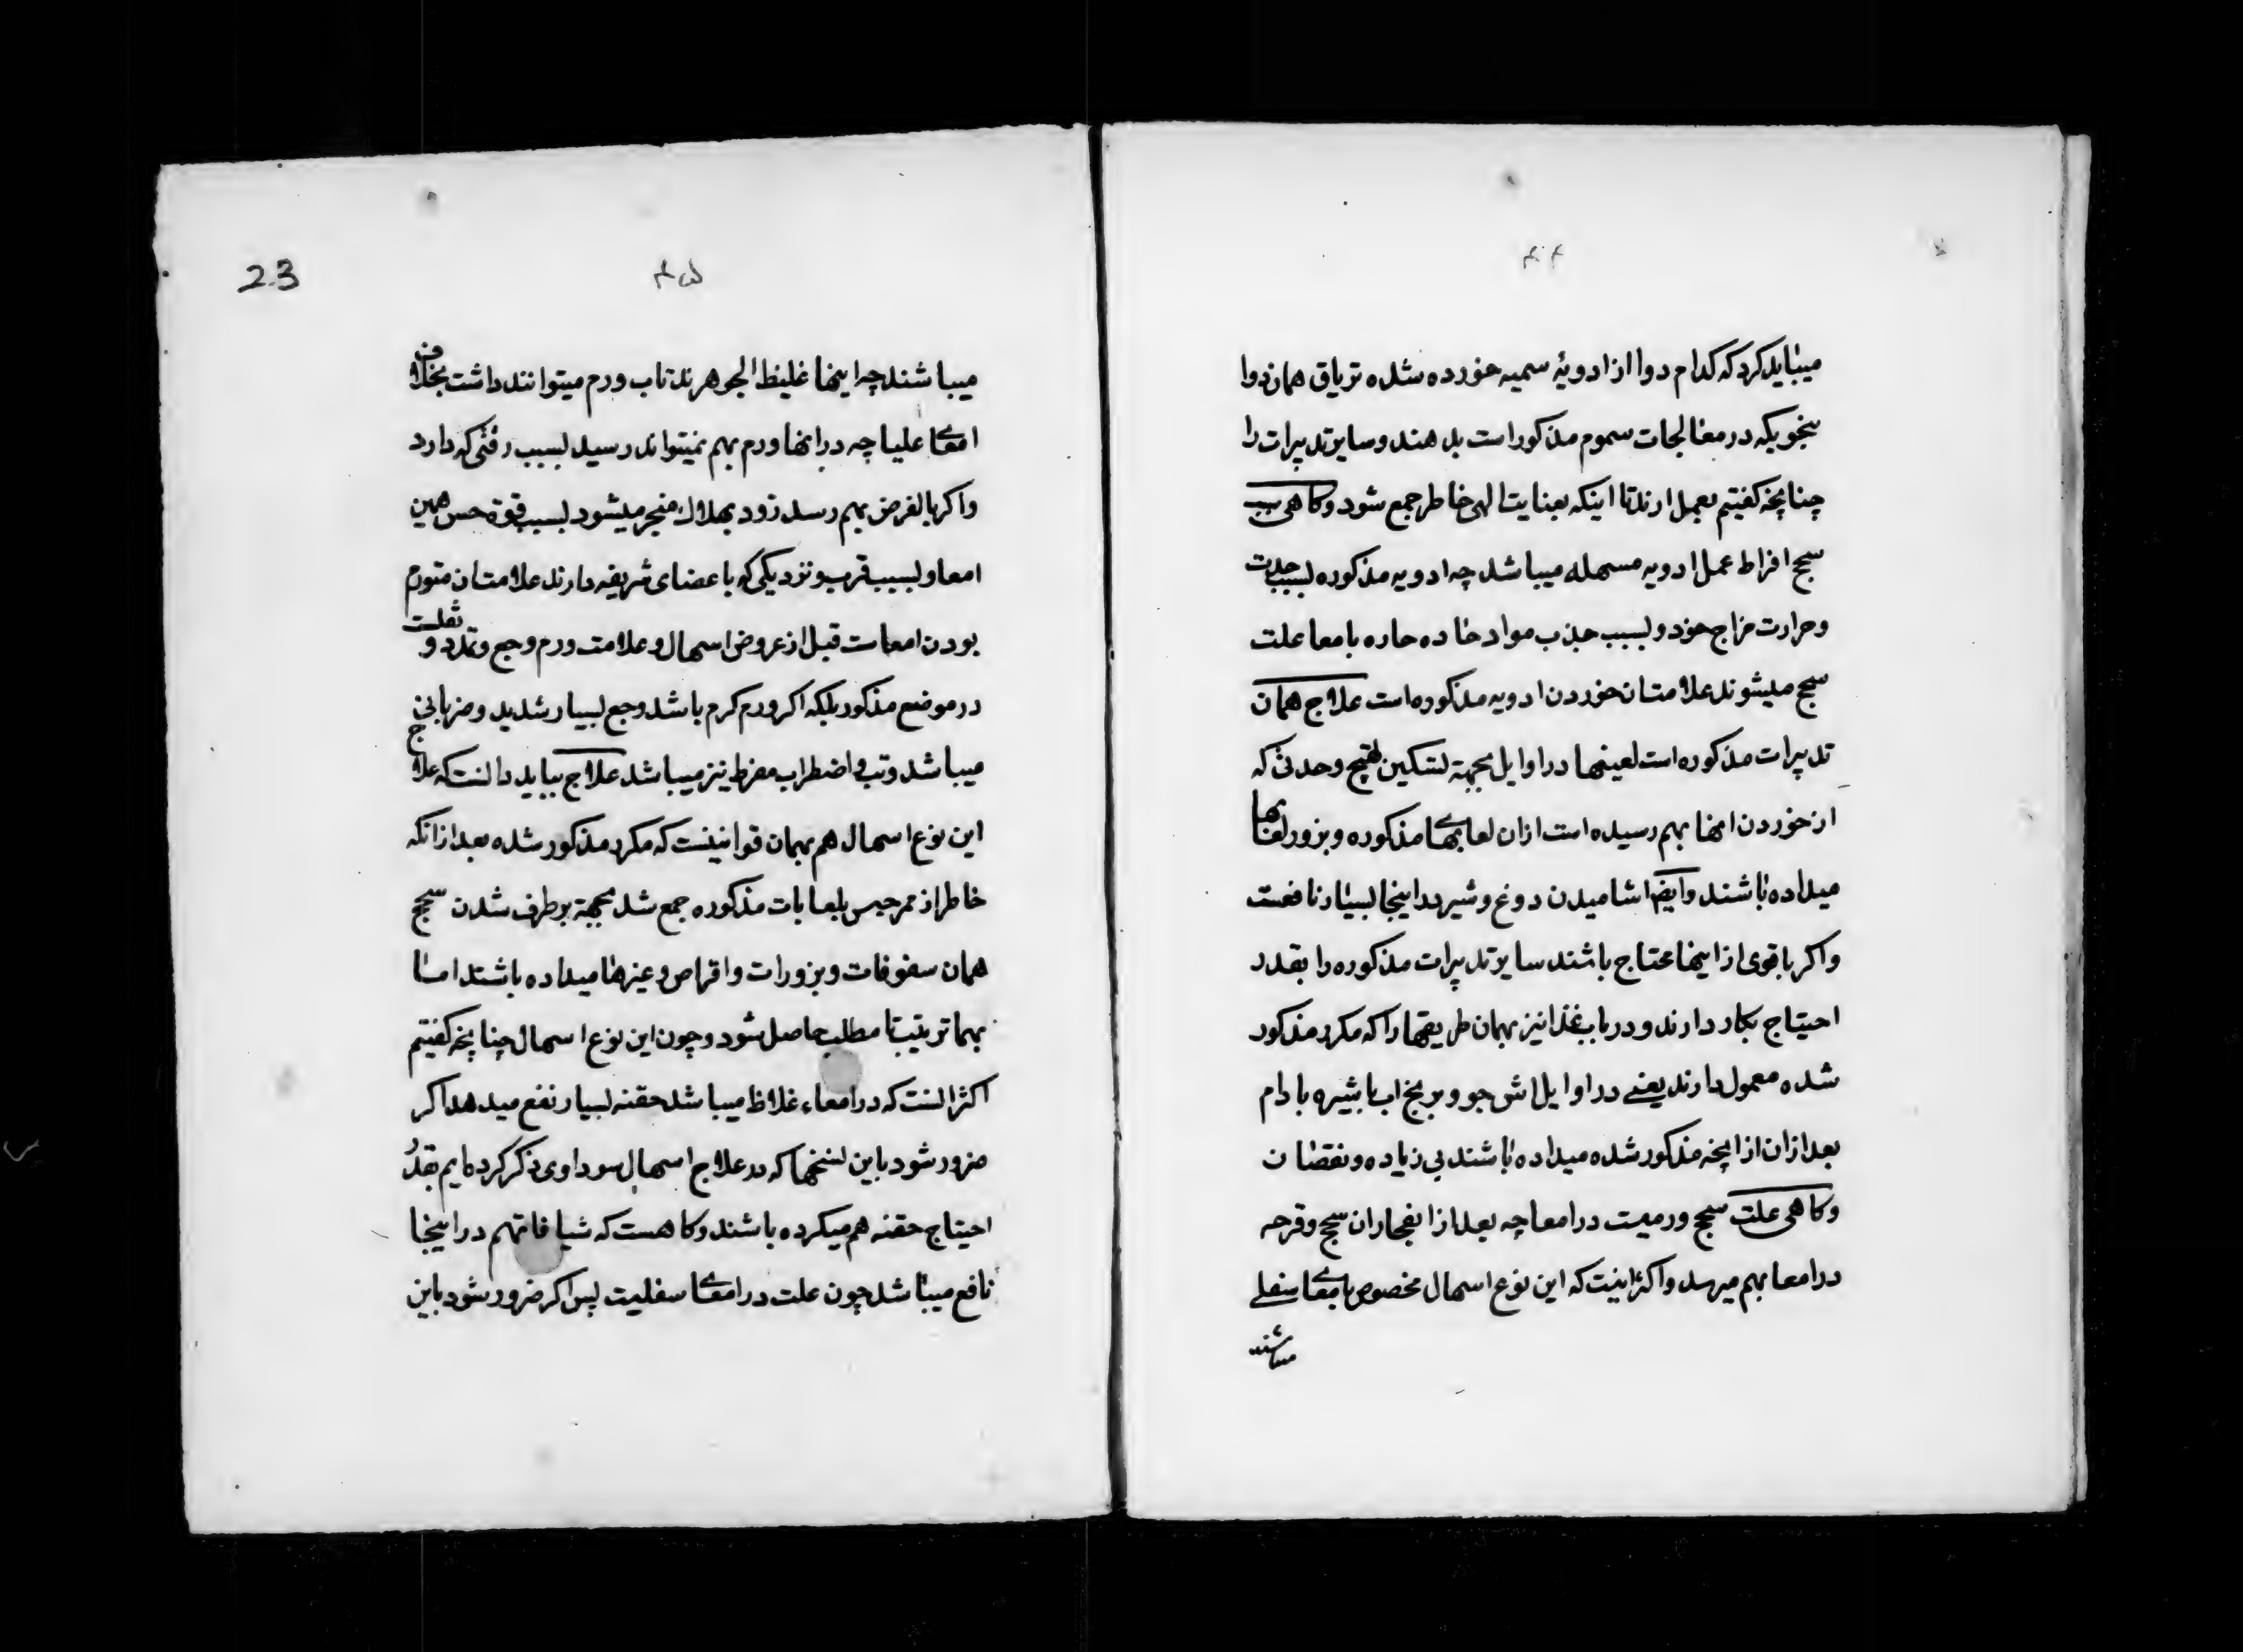 ۴۴
میباید کرد که کدام دوا از ادویهٔ سمیه خورده شده تریاق همان دوا
بنحویکه در معالجات سموم مذکور است بدهند و سایر تدبیرات را
چنانچه کفتیم بعمل ارند تا اینکه بعنایت الهی خاطر جمع شود و کاهی سبب
سحج افراط عمل ادویه مسهله میباشد چه ادویه مذکوره بسبب حدت
و حرارت مزاج خود و بسبب جذب مواد حاده حاره بامعا علت
سحج میشوند علامت ان خوردن ادویه مذکوره است علاج همان
تدبیرات مذکوره است بعینها در اوایل بجهة تسکین لهیب و حدتی که
از خوردن انها بهم رسیده است ازان لعابهای مذکوره و بزور لعابها
میداده باشند و ایضا اشامیدن دوغ و شیر در اینجا بسیار نافعست
و اکر باقوی از اینها محتاج باشند سایر تدبیرات مذکوره را بقدر
احتیاج بکار دارند و در باب غذا نیز بهمان طریقها را که مکرر مذکور
شده معمول دارند یعنے در اوایل اش جو و برنج اب با شیره بادام
بعد ازان از انچه مذکور شده میداده باشند بی زیاده و نقصان
و کاهی علت سحج ورمیست در امعا چه بعد از انفجار ان سحج و قرحه
در امعا بهم میرسد و اکثر اینست که این نوع اسهال مخصوص بامعای سفلے
میباشند
23
۴۵
میباشند چه اینها غلیظ الجوهرند تاب ورم میتوانند داشت بخلاف
امعای علیا چه در انها ورم بهم نمیتواند رسید بسبب رقتی که دارد
و اکر بالفرض بهم رسد زود بهلاک منجر میشود بسبب قوة حس همین
امعا و بسبب قرب و نزدیکی که باعضای شریفه دارند علامت ان متورم
بودن امعاست قبل از عروض اسهال و علامت ورم وجع و تمدد و ثقلست
در موضع مذکور بلکه اکر ورم کرم باشد وجع بسیار شدید و ضربانی
میباشد و تب و اضطراب مفرط نیز میباشد علاج بباید دانست که علاج
این نوع اسهال هم بهمان قوانینست که مکرر مذکور شده بعد ازانکه
خاطر از ممر حبس بلعابات مذکوره جمع شد بجهة برطرف شدن سحج
همان سفوفات و بزورات و اقراص و غیرها میداده باشند اما
بهمان ترتیب تا مطلب حاصل شود و چون این نوع اسهال چنانچه کفتیم
اکثر انست که در امعاء غلاظ میباشد حقنه بسیار نفع میدهد اکر
ضرور شود باین نسخها که در علاج اسهال سوداوی ذکر کرده ایم بقدر
احتیاج حقنه هم میکرده باشند و کاهست که شیافات هم در اینجا
نافع میباشد چون علت در امعای سفلیست پس اکر ضرور شود باین